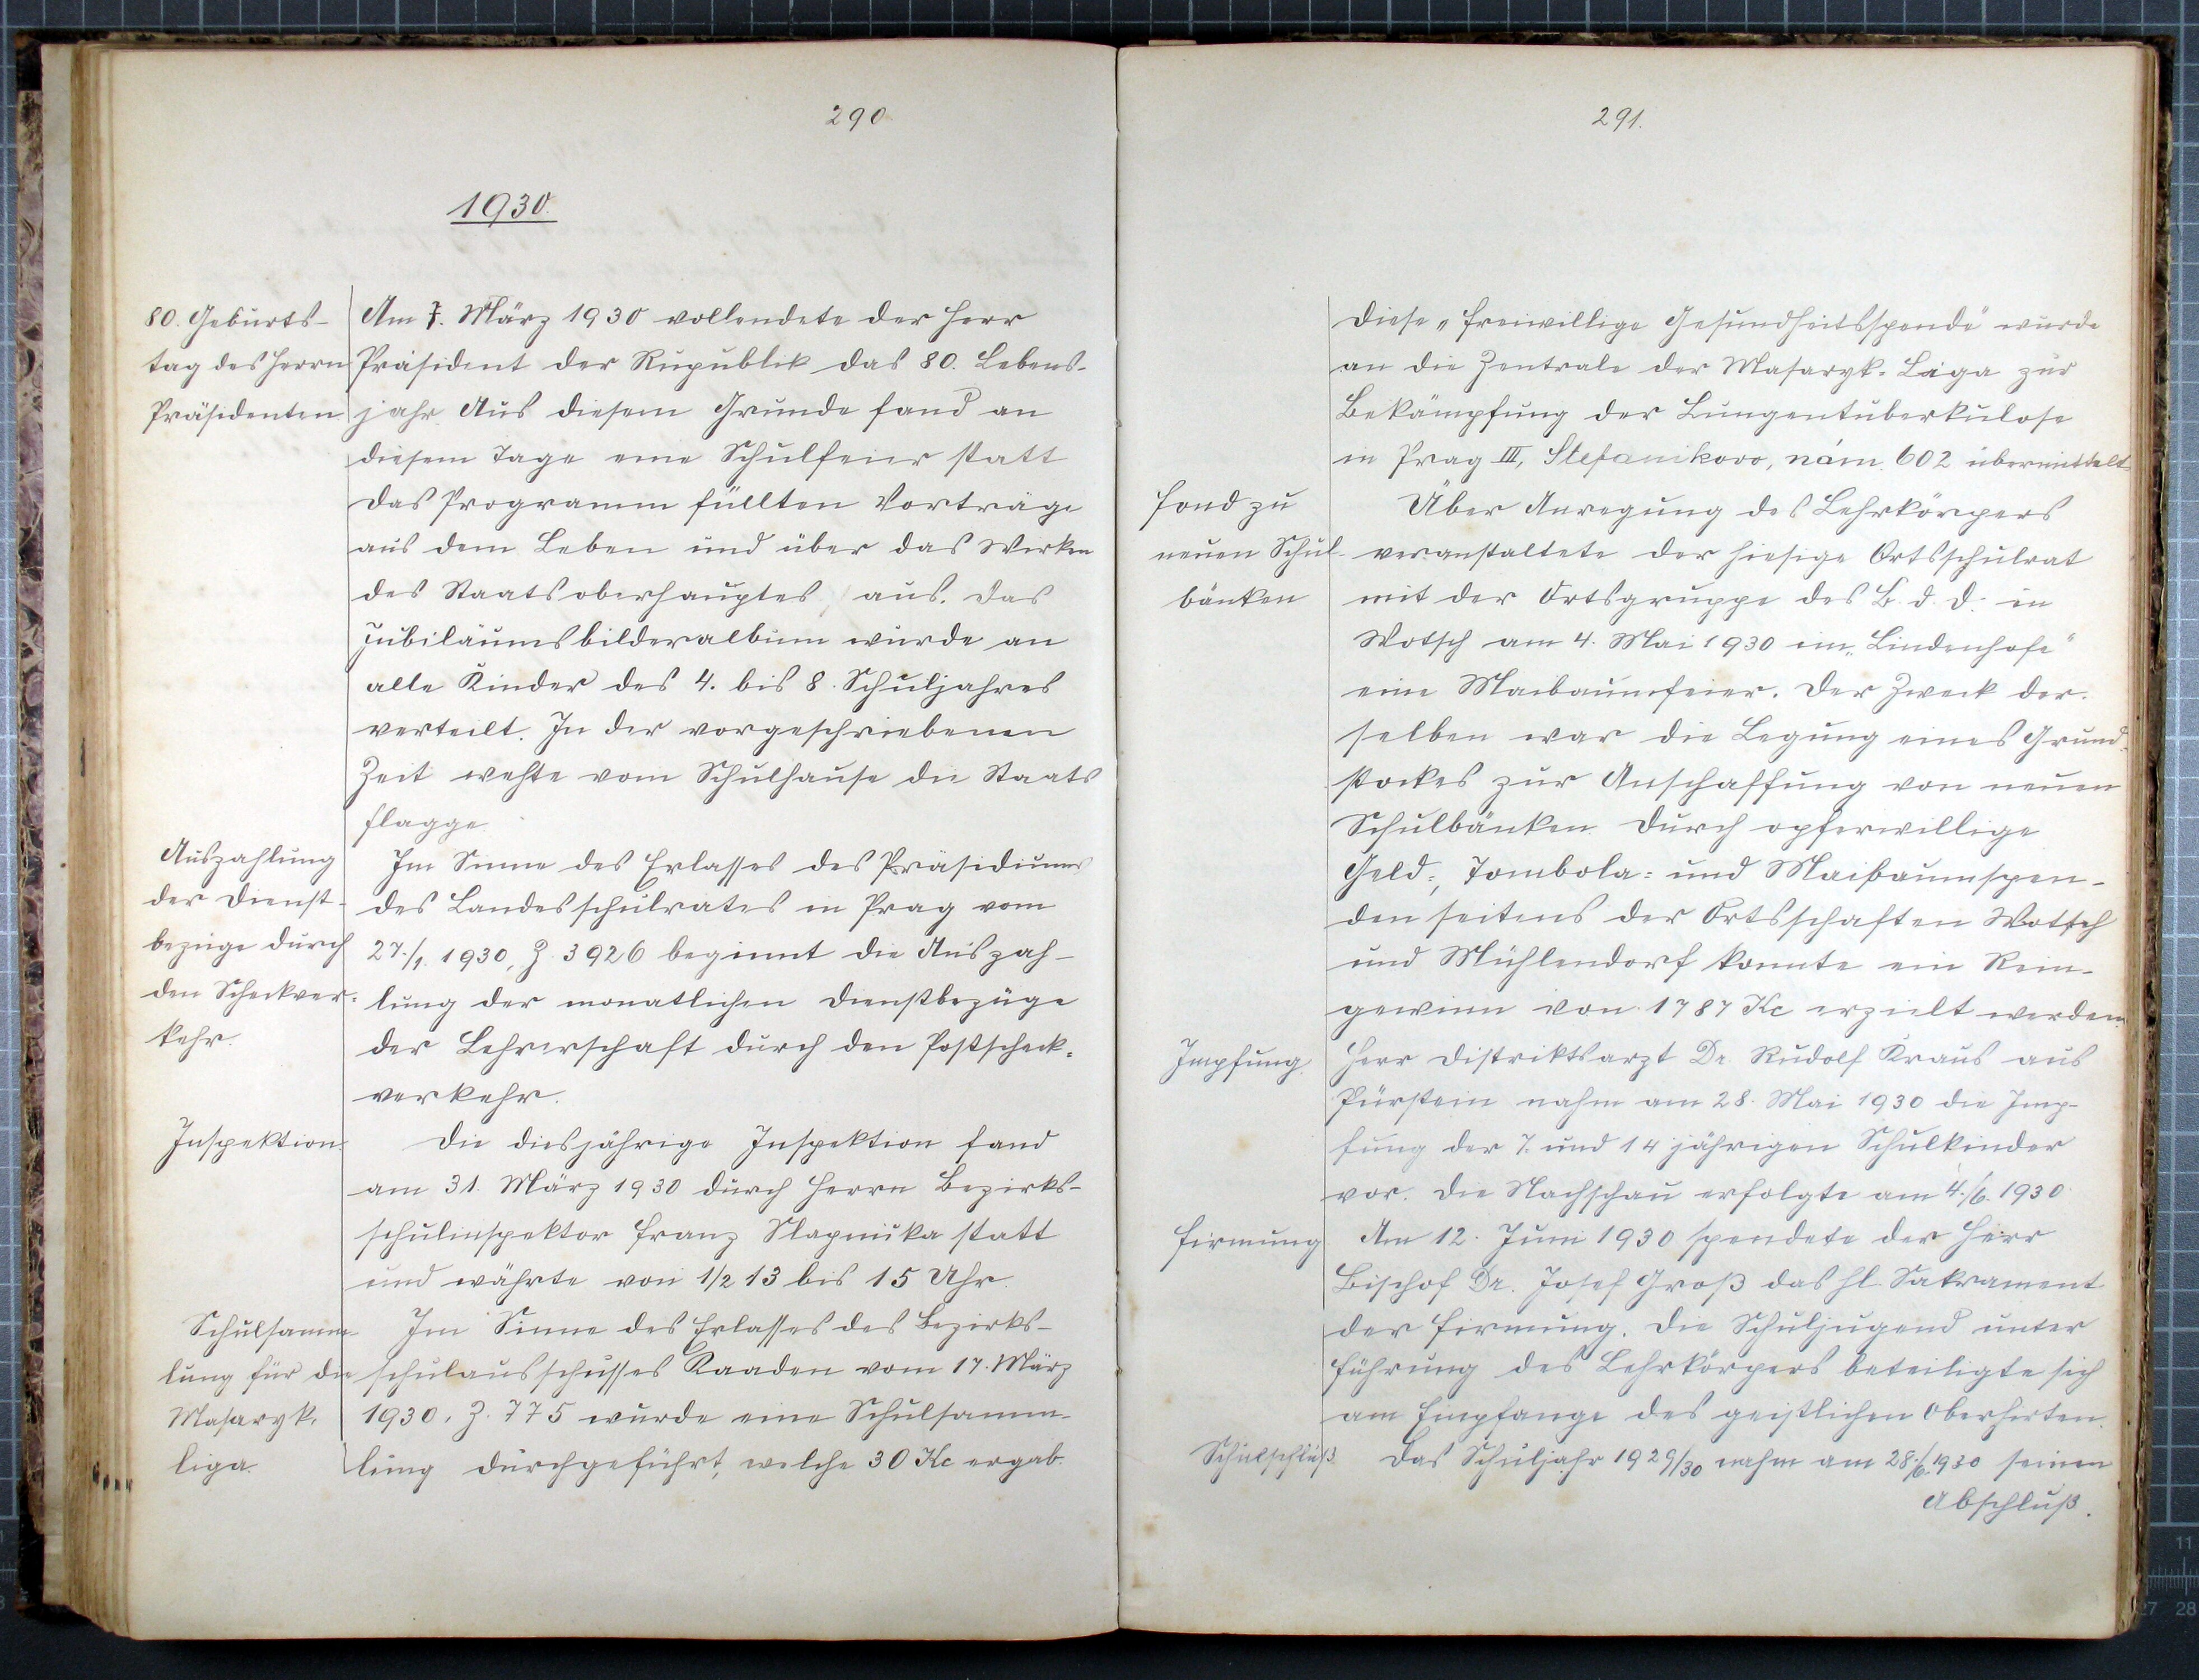 290
1930.
80. Geburts-
tag des Herrn
Präsidenten
Am 7. März 1930 vollendete der Herr
Präsident der Rupublik das 80. Lebens-
jahr. Aus diesem Grunde fand an
diesem Tage eine Schulfeier statt
Das Programm füllten Vorträge
aus dem Leben und über das Wirken
des Staatsoberhauptes aus. Das
Jubiläumsbilderalbum wurde an
alle Kinder des 4. bis 8. Schuljahres
verteilt. In der vorgeschriebenen
Zeit wehte vom Schulhause die Staats
flagge.
Auszahlung
der Dienst-
bezüge durch
den Scheckver-
kehr.
Im Sinne des Erlasses des Präsidiums
des Landesschulrates in Prag vom
27./1. 1930, Z. 3926 beginnt die Auszah-
lung der monatlichen Dienstbezüge
der Lehrerschaft durch den Postscheck-
verkehr.
Inspektion.
Die diesjährige Inspektion fand
am 31. März 1930 durch Herrn Bezirks-
schulinspektor Franz Slapnika statt
und währte von 1/2 13 bis 15 Uhr.
Schulsamm-
lung für die
Masaryk-
liga.
Im Sinne des Erlasses des Bezirks-
schulausschusses Kaaden vom 17. März
1930, Z. 775 wurde eine Schulsamm-
lung durchgeführt, welche 30 Kc ergab.
291.
Diese „freiwillige Gesundheitsspende" wurde
an die Zentrale der Masaryk-Liga zur
Bekämpfung der Lungentuberkulose
in Prag III, Stefanikovo, nám. 602 übermittelt.
Fond zu
neuen Schul-
bänken
Über Anregung des Lehrkörpers
veranstaltete der hiesige Ortsschulrat
mit der Ortsgruppe des B. d. D. in
Wotsch am 4. Mai 1930 im „Lindenhofe"
eine Maibaumfeier. Der Zweck der-
selben war die Legung eines Grund-
stockes zur Anschaffung von neuen
Schulbänken. Durch opferwillige
Geld-, Tombola- und Maibaumspen-
den seitens der Ortsschaften Wotsch
und Mühlendorf konnte ein Rein-
gewinn von 1787 Kc erzielt werden.
Impfung.
Herr Distriktsarzt Dr. Rudolf Kraus aus
Pürstein nahm am 28. Mai 1930 die Imp-
fung der 7- und 14 jährigen Schulkinder
vor. Die Nachschau erfolgte am 4./6. 1930.
Firmung
Am 12. Juni 1930 spendete der Herr
Bischof Dr. Josef Groß das hl. Sakrament
der Firmung. Die Schuljugend unter
Führung des Lehrkörpers beteiligte sich
am Empfange des geistlichen Oberhirten.
Schulschluß.
Das Schuljahr 1929/30 nahm am 28./6. 1930 seinen
Abschluß.
11
27 28